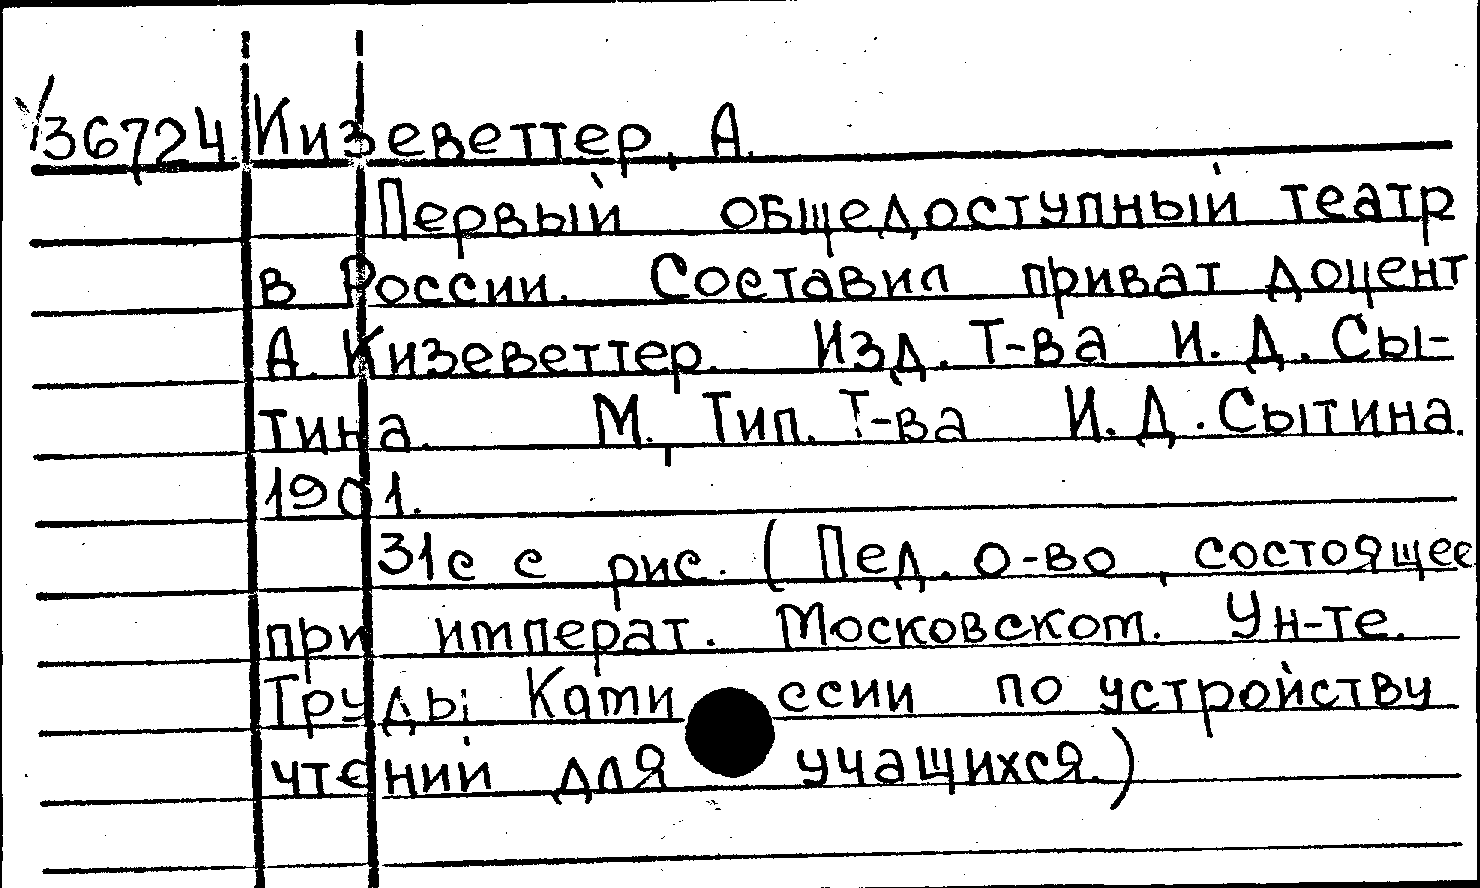 У36724 Кизеветтер, А.
Первый общедоступный театр
в России. Составил приват доцент
А. Кизеветтер. Изд. Т-ва И. Д. Сы-
тина. М., Тип. Т-ва И. Д. Сытина.
1901.
31с с рис. (Пед. о-во, состоящее
при императ. Московском. Ун-те.
Труды Коми ссии по устройству
чтений для учащихся.)